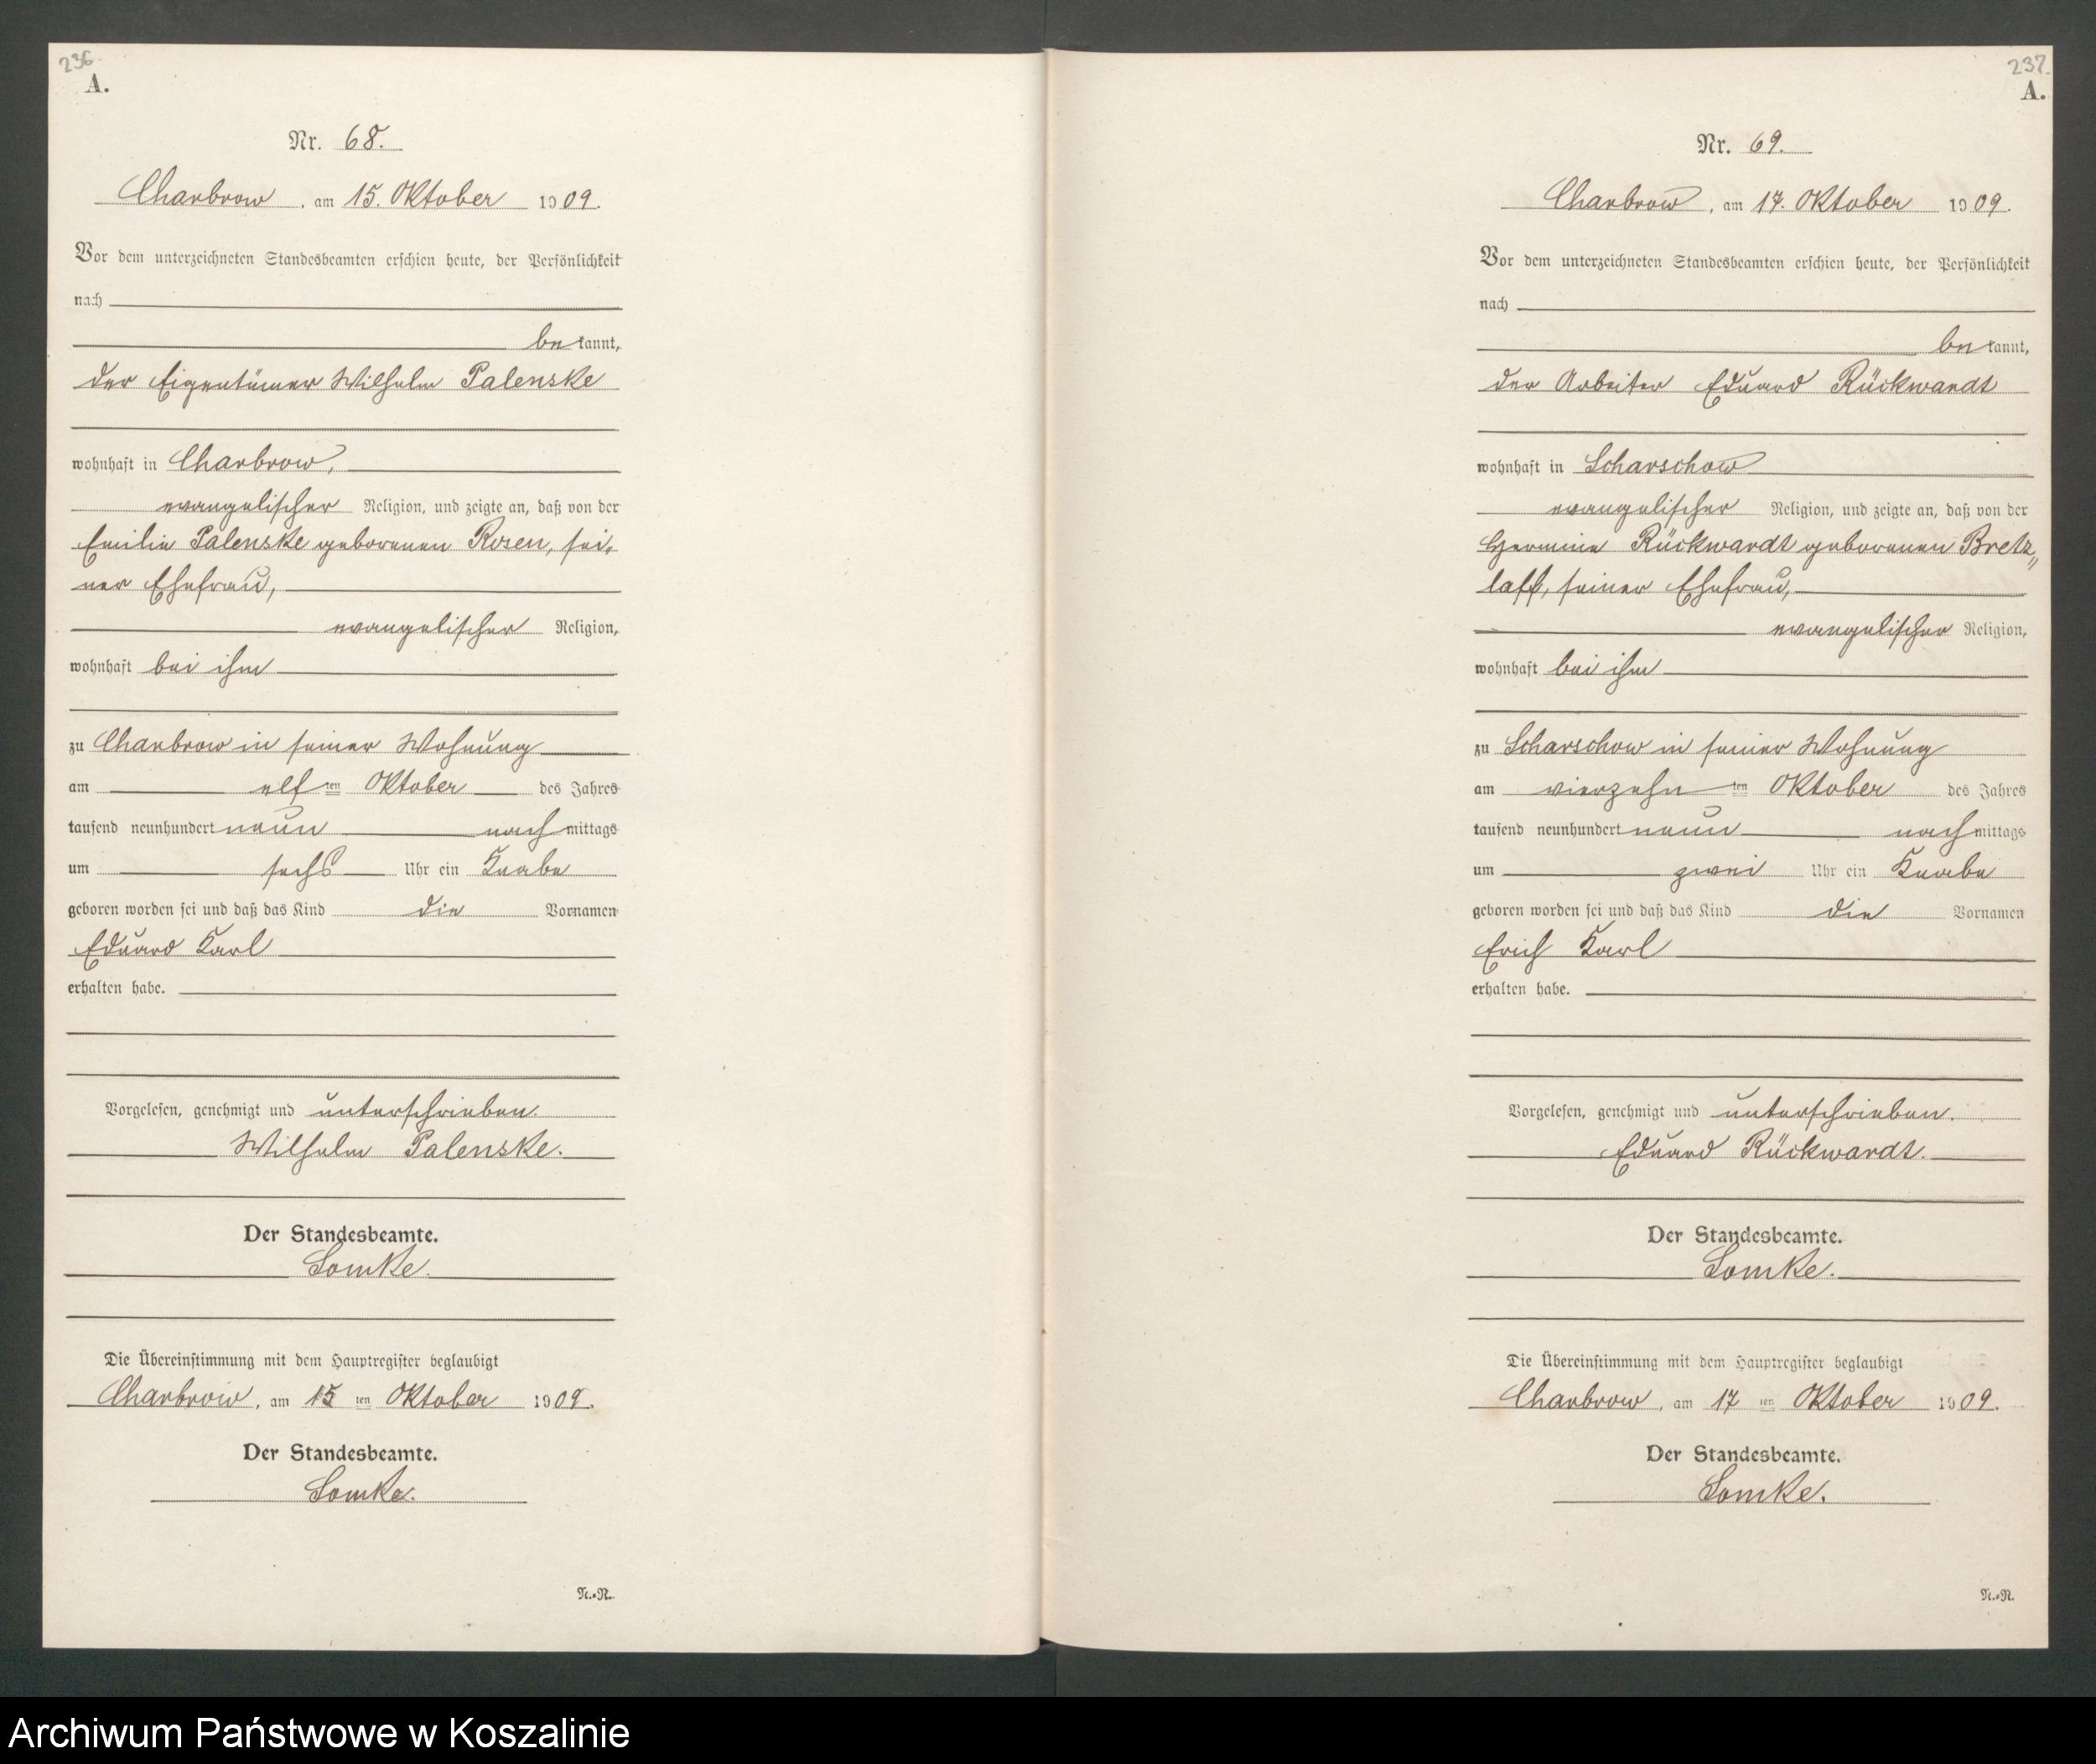 236.
A.
Nr. 68.
Charbrow, am 15. Oktober 1909.
Vor dem unterzeichneten Standesbeamten erschien heute, der Persönlichkeit
nach
bekannt,
der Eigentümer Wilhelm Palenske
wohnhaft in Charbrow,
evangelischer Religion, und zeigte an, daß von der
Emilie Palenske geborenen Rosen, sei-
ner Ehefrau,
evangelischer Religion,
wohnhaft bei ihm
zu Charbrow in seiner Wohnung
am elften Oktober des Jahres
tausend neunhundert neun nachmittags
um sechs Uhr ein Knabe
geboren worden sei und daß das Kind die Vornamen
Eduard Karl
erhalten habe.
Vorgelesen, genehmigt und unterschrieben.
Wilhelm Palenske.
Der Standesbeamte.
Lomke.
Die Übereinstimmung mit dem Hauptregister beglaubigt
Charbrow, am 15ten Oktober 1909.
Der Standesbeamte.
Lomke.
N.=R.
237.
A.
Nr. 69.
Charbrow, am 17. Oktober 1909.
Vor dem unterzeichneten Standesbeamten erschien heute, der Persönlichkeit
nach
bekannt,
der Arbeiter Eduard Rückwardt
wohnhaft in Scharschow
evangelischer Religion, und zeigte an, daß von der
Hermine Rückwardt geborenen Bretz„
laff, seiner Ehefrau,
evangelischer Religion,
wohnhaft bei ihm
zu Scharschow in seiner Wohnung
am vierzehnten Oktober des Jahres
tausend neunhundert neun nachmittags
um zwei Uhr ein Knabe
geboren worden sei und daß das Kind die Vornamen
Erich Karl
erhalten habe.
Vorgelesen, genehmigt und unterschrieben.
Eduard Rückwardt.
Der Standesbeamte.
Lomke.
Die Übereinstimmung mit dem Hauptregister beglaubigt
Charbrow, am 17ten Oktober 1909.
Der Standesbeamte.
Lomke.
N.=R.
Archiwum Państwowe w Koszalinie